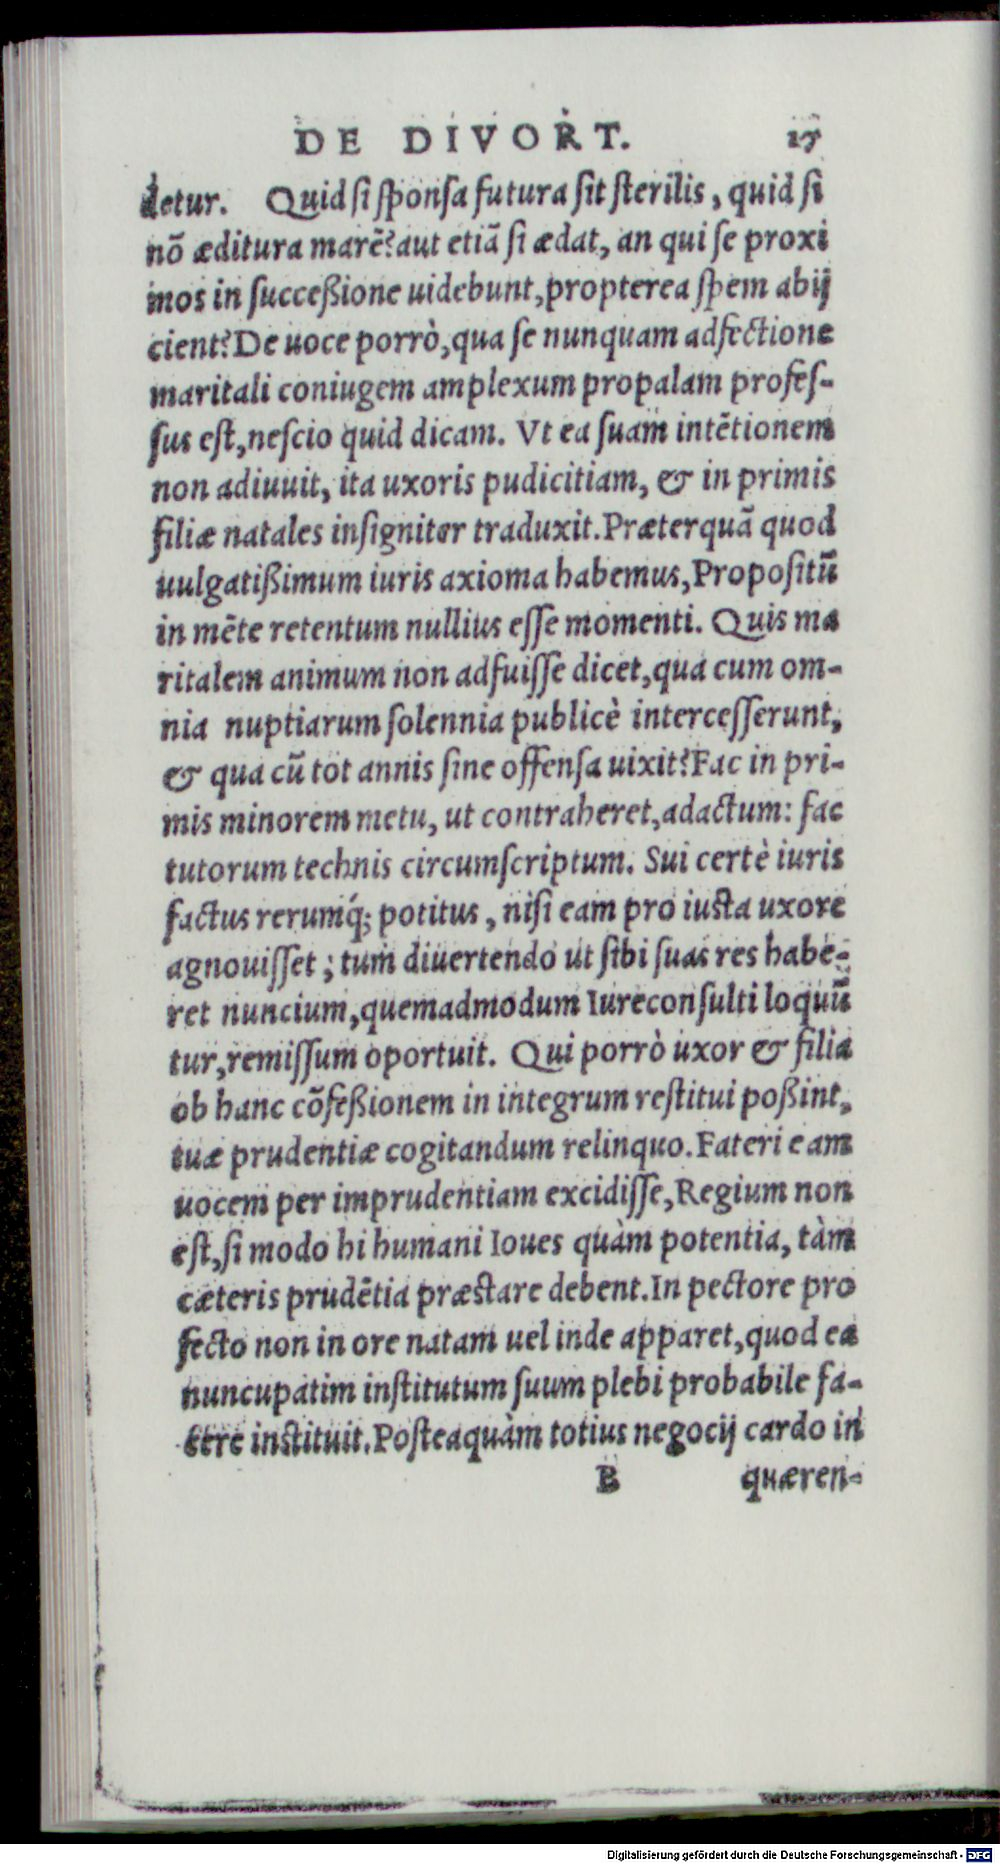 DE DIVORT. 17
detur. Quid si sponsa futura sit sterilis, quid si
nõ æditura marẽ? aut etiã si ædat, an qui se proxi
mos in succeßione uidebunt, propterea spem abij
cient? De uoce porrò, qua se nunquam adfectione
maritali coniugem amplexum propalam profes-
sus est, nescio quid dicam. Vt ea suam intẽtionem
non adiuuit, ita uxoris pudicitiam, & in primis
filiæ natales insigniter traduxit. Præterquã quod
uulgatißimum iuris axioma habemus, Propositũ
in mẽte retentum nullius esse momenti. Quis ma
ritalem animum non adfuisse dicet, qua cum om-
nia nuptiarum solennia publicè intercesserunt,
& qua cũ tot annis sine offensa uixit? Fac in pri-
mis minorem metu, ut contraheret, adactum: fac
tutorum technis circumscriptum. Sui certè iuris
factus rerumq́; potitus, nisi eam pro iusta uxore
agnouisset; tum diuertendo ut sibi suas res habe-
ret nuncium, quemadmodum Iureconsulti loquũ
tur, remissum oportuit. Qui porrò uxor & filia
ob hanc cõfeßionem in integrum restitui poßint,
tuæ prudentiæ cogitandum relinquo. Fateri eam
uocem per imprudentiam excidisse, Regium non
est, si modo hi humani Ioues quàm potentia, tàm
cæteris prudẽtia præstare debent. In pectore pro
fecto non in ore natam uel inde apparet, quod ea
nuncupatim institutum suum plebi probabile fa-
cere instituit. Posteaquàm totius negocij cardo in
B quæren-
Digitalisierung gefördert durch die Deutsche Forschungsgemeinschaft - DFG